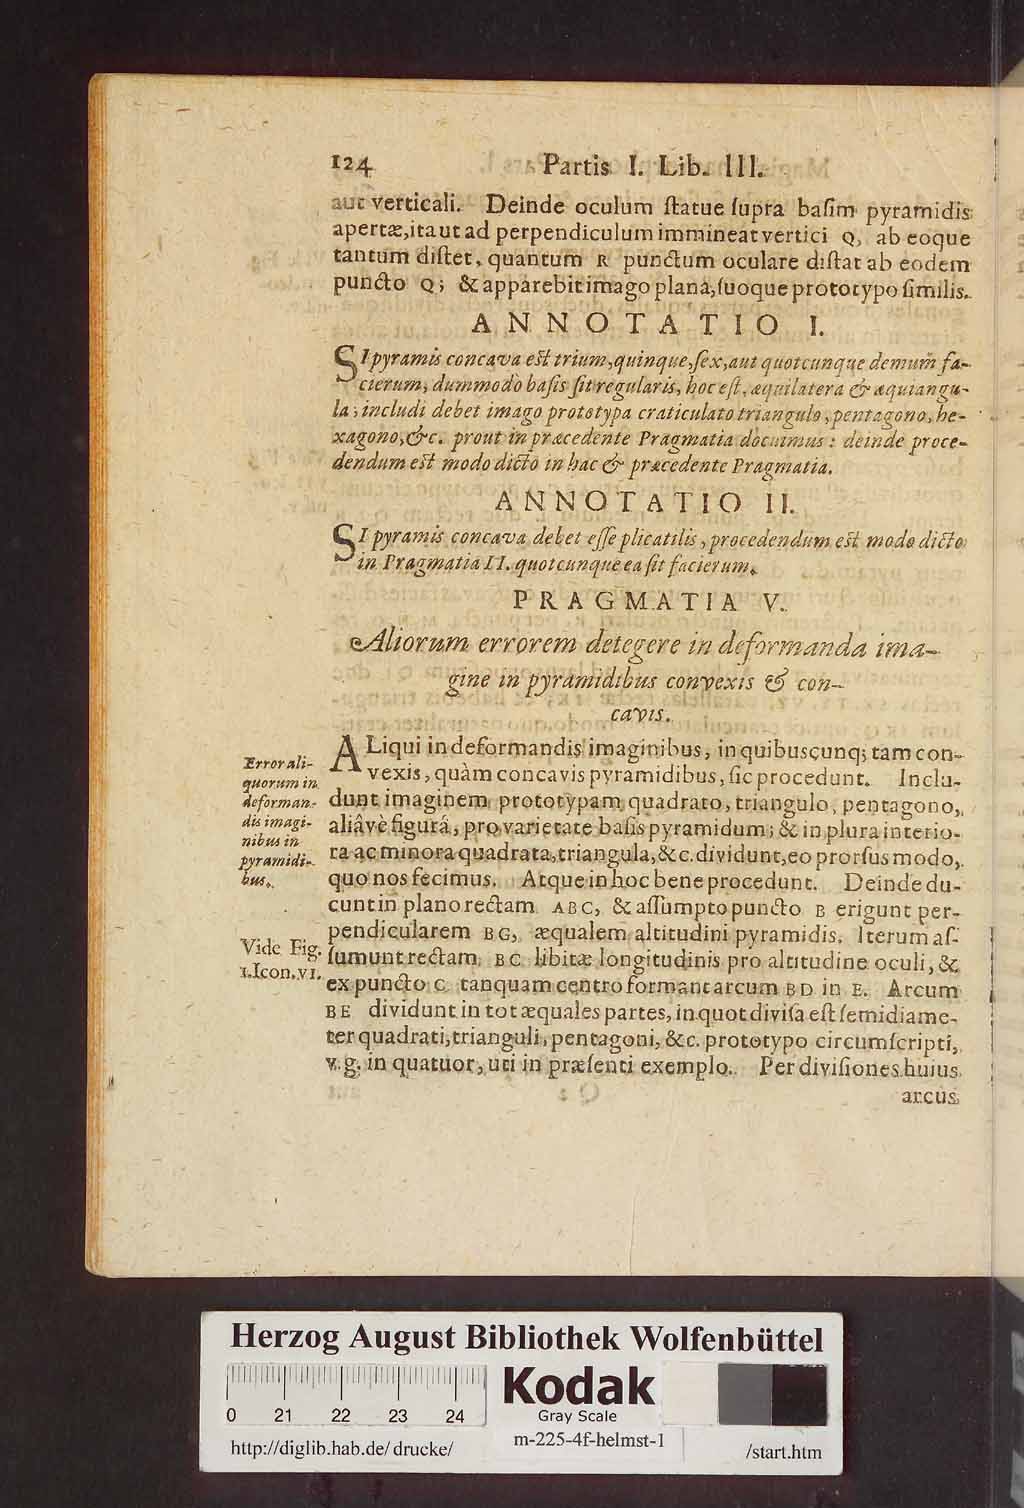 124 Partis I. Lib. III.
aut verticali. Deinde oculum ſtatue ſupra baſim pyramidis
apertæ, ita ut ad perpendiculum immineat vertici Q, ab eoque
tantum diſtet, quantum R punctum oculare diſtat ab eodem
puncto Q; & apparebit imago planâ, ſuoque prototypo ſimilis.
ANNOTATIO I.
SI pyramis concava est trium, quinque, ſex, aut quotcunque demum fa-
cierum, dummodò baſis ſit regularis, hoc eſt, æquilatera & æquiangu-
la; includi debet imago prototypa craticulato triangulo, pentagono, he-
xagono, &c. prout in præcedente Pragmatia docuimus: deinde proce-
dendum est modo dicto in hac & præcedente Pragmatia.
ANNOTATIO II.
SI pyramis concava debet eſſe plicatilis, procedendum est modo dicto
in Pragmatia II. quotcunque ea ſit facierum.
PRAGMATIA V.
Aliorum errorem detegere in deformanda ima-
gine in pyramidibus convexis & con-
cavis.
ALiqui in deformandis imaginibus, in quibuscunq; tam con-
vexis, quàm concavis pyramidibus, ſic procedunt. Inclu-
dunt imaginem prototypam quadrato, triangulo, pentagono,
aliâvè figurâ, pro varietate baſis pyramidum; & in plura interio-
ra ac minora quadrata, triangula, &c. dividunt, eo prorſus modo,
quo nos fecimus. Atque in hoc bene procedunt. Deinde du-
cunt in plano rectam ABC, & aſſumpto puncto B erigunt per-
pendicularem BG, æqualem altitudini pyramidis. Iterum aſ-
ſumunt rectam BC libitæ longitudinis pro altitudine oculi, &
ex puncto C tanquam centro formant arcum BD in E. Arcum
BE dividunt in tot æquales partes, in quot diviſa eſt ſemidiame-
ter quadrati, trianguli, pentagoni, &c. prototypo circumſcripti,
v. g. in quatuor, uti in præſenti exemplo. Per diviſiones huius
arcus
Error ali-
quorum in
deforman-
dis imagi-
nibus in
pyramidi-
bus.
Vide Fig.
1. Icon. VI.
Herzog August Bibliothek Wolfenbüttel
0 21 22 23 24
Kodak
Gray Scale
http://diglib.hab.de/drucke/ m-225-4f-helmst-1 /start.htm